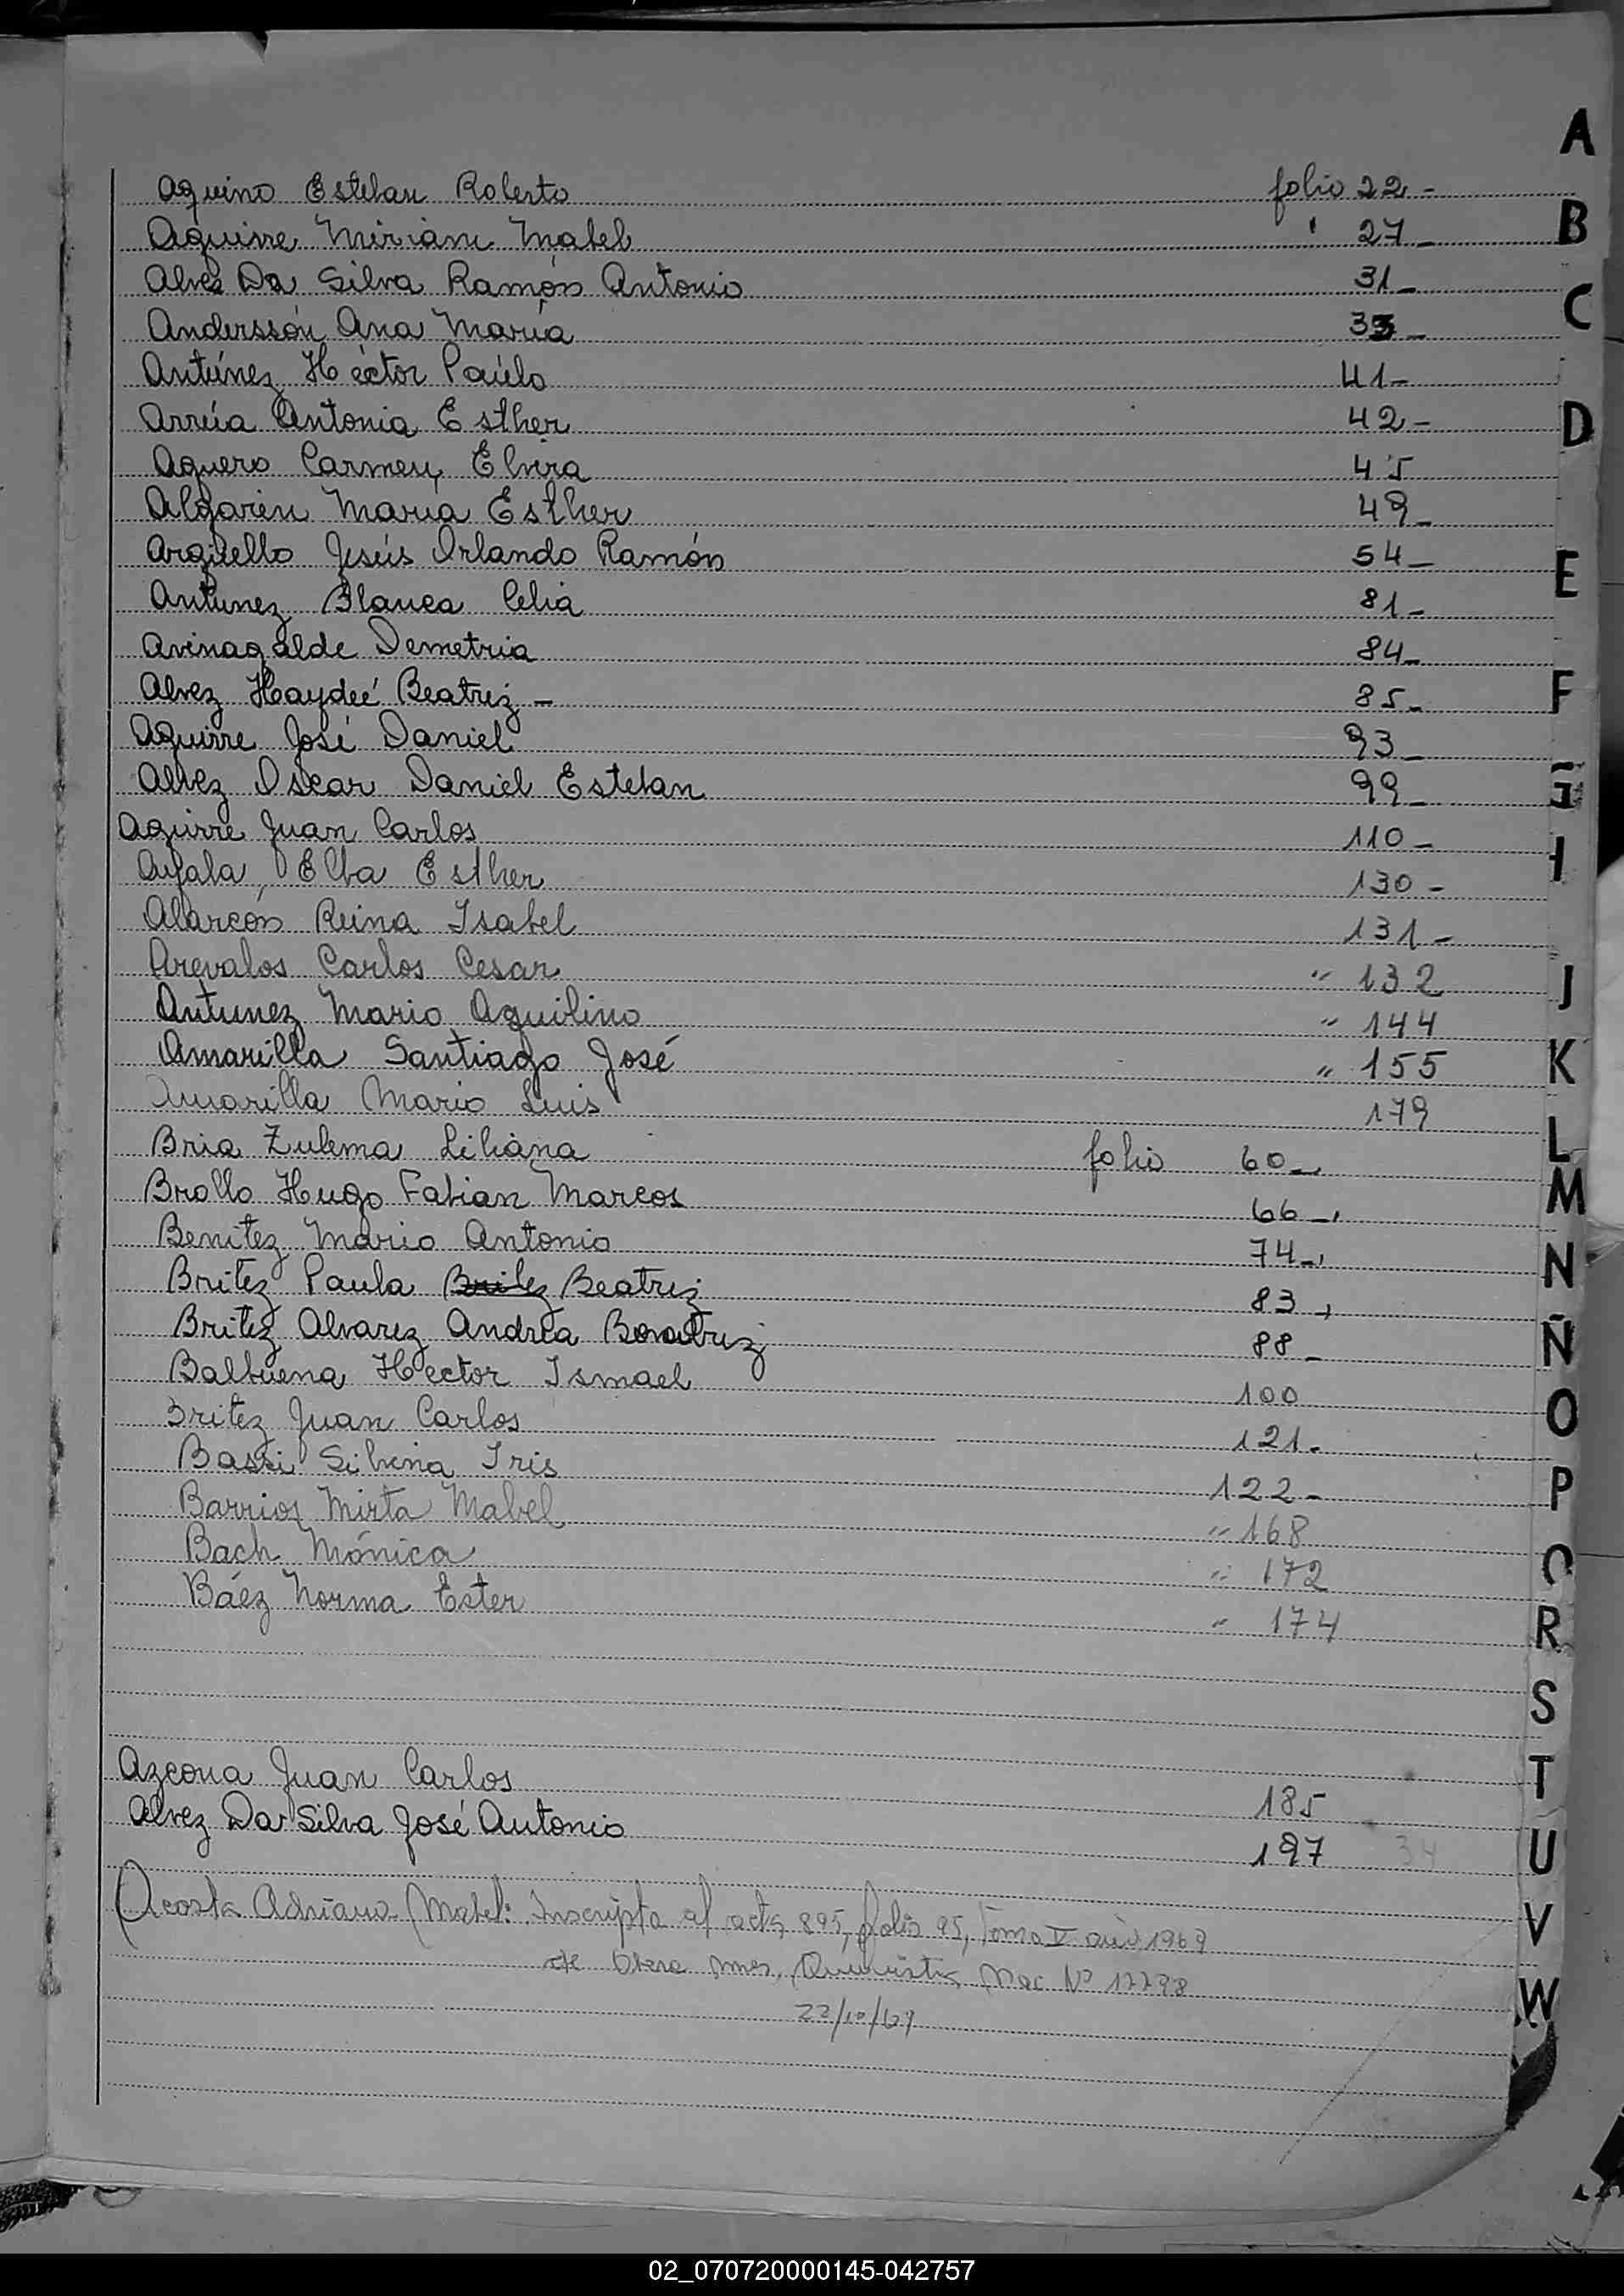 Aquino Esteban Roberto folio 22-
Aguirre Miriam Mabel " 27-
Alves Da Silva Ramón Antonio 31-
Anderssón Ana María 33-
Antúnez Héctor Paúlo 41-
Arrúa Antonia Esther 42-
Aguero Carmen Elvira 45
Algarin María Esther 49-
Argüello Jesús Orlando Ramón 54-
Antunez Blanca Celia 81-
Arinagalde Demetria 84-
Alvez Haydeé Beatriz - 85-
Aguirre José Daniel 93-
Alvez Oscar Daniel Esteban 99-
Aguirre Juan Carlos 110-
Ayala, Elba Esther 130-
Alarcón Reina Isabel 131-
Arevalos Carlos Cesar " 132
Antunez Mario Aquilino " 144
Amarilla Santiago José " 155
Amarilla Mario Luis 179
Bria Zulema Liliana folio 60-
Brollo Hugo Fabian Marcos 66-
Benitez Mario Antonio 74-
Britez Paula Britez Beatriz 83-
Britez Alvarez Andrea Beatriz 88-
Balbuena Hector Ismael 100
Britez Juan Carlos 121-
Bassi Silvina Iris 122-
Barrios Mirta Mabel " 168
Bach Mónica " 172
Báez Norma Ester " 174
Azcona Juan Carlos 185
Alvez Da Silva José Antonio 197 34
Acosta Adriana Mabel: Inscripta al acta 895, folio 95, Tomo V año 1969
de Obera Mnes. Nac Nº
A
B
C
D
E
F
G
H
I
J
K
L
M
N
Ñ
O
P
Q
R
S
T
U
V
W
02_070720000145-042757